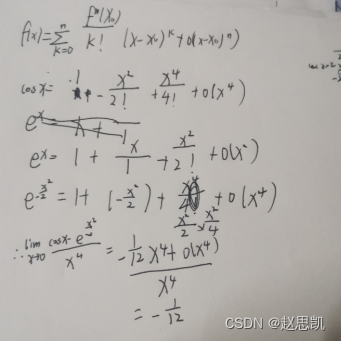 f(x)=∑_{k=0}^{n} f^n(x₀)/k! (x-x₀)^k+o(x-x₀)^n)
cosx= 1 - x²/2! + x⁴/4! + o(x⁴)
e^x = 1 + x/1 + x²/2! + o(x²)
e^{-x²/2} = 1+ (-x²/2) + x²/2 × x²/4 + o(x⁴)
∴ lim_{x→0} (cosx - e^{-x²/2})/x⁴ = (-1/12 x⁴ + o(x⁴))/x⁴
= -1/12
CSDN @赵思凯